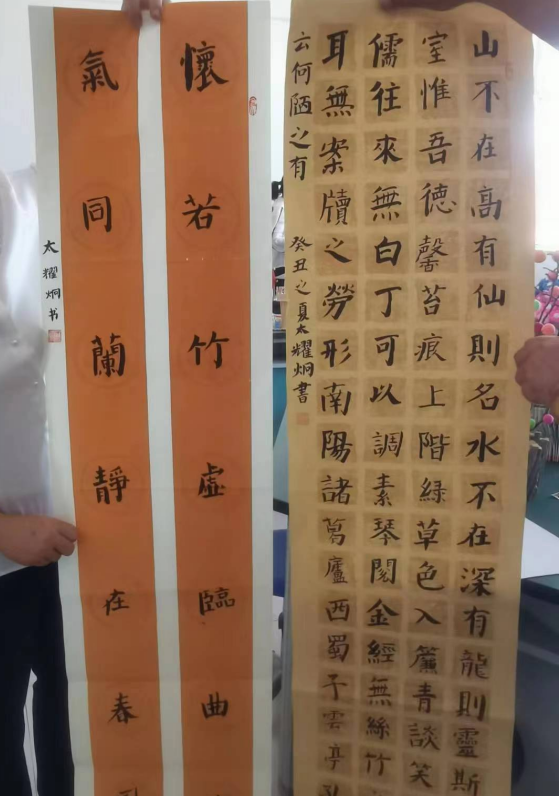 山不在高有仙則名水不在深有龍則靈斯
室惟吾德馨苔痕上階綠草色入簾青談笑
儒往來無白丁可以調素琴閱金經無絲竹
耳無案牘之勞形南陽諸葛廬西蜀子雲亭
云何陋之有 癸丑之夏太耀炯書
懷若竹虛臨曲
氣同蘭靜在春
太耀炯书